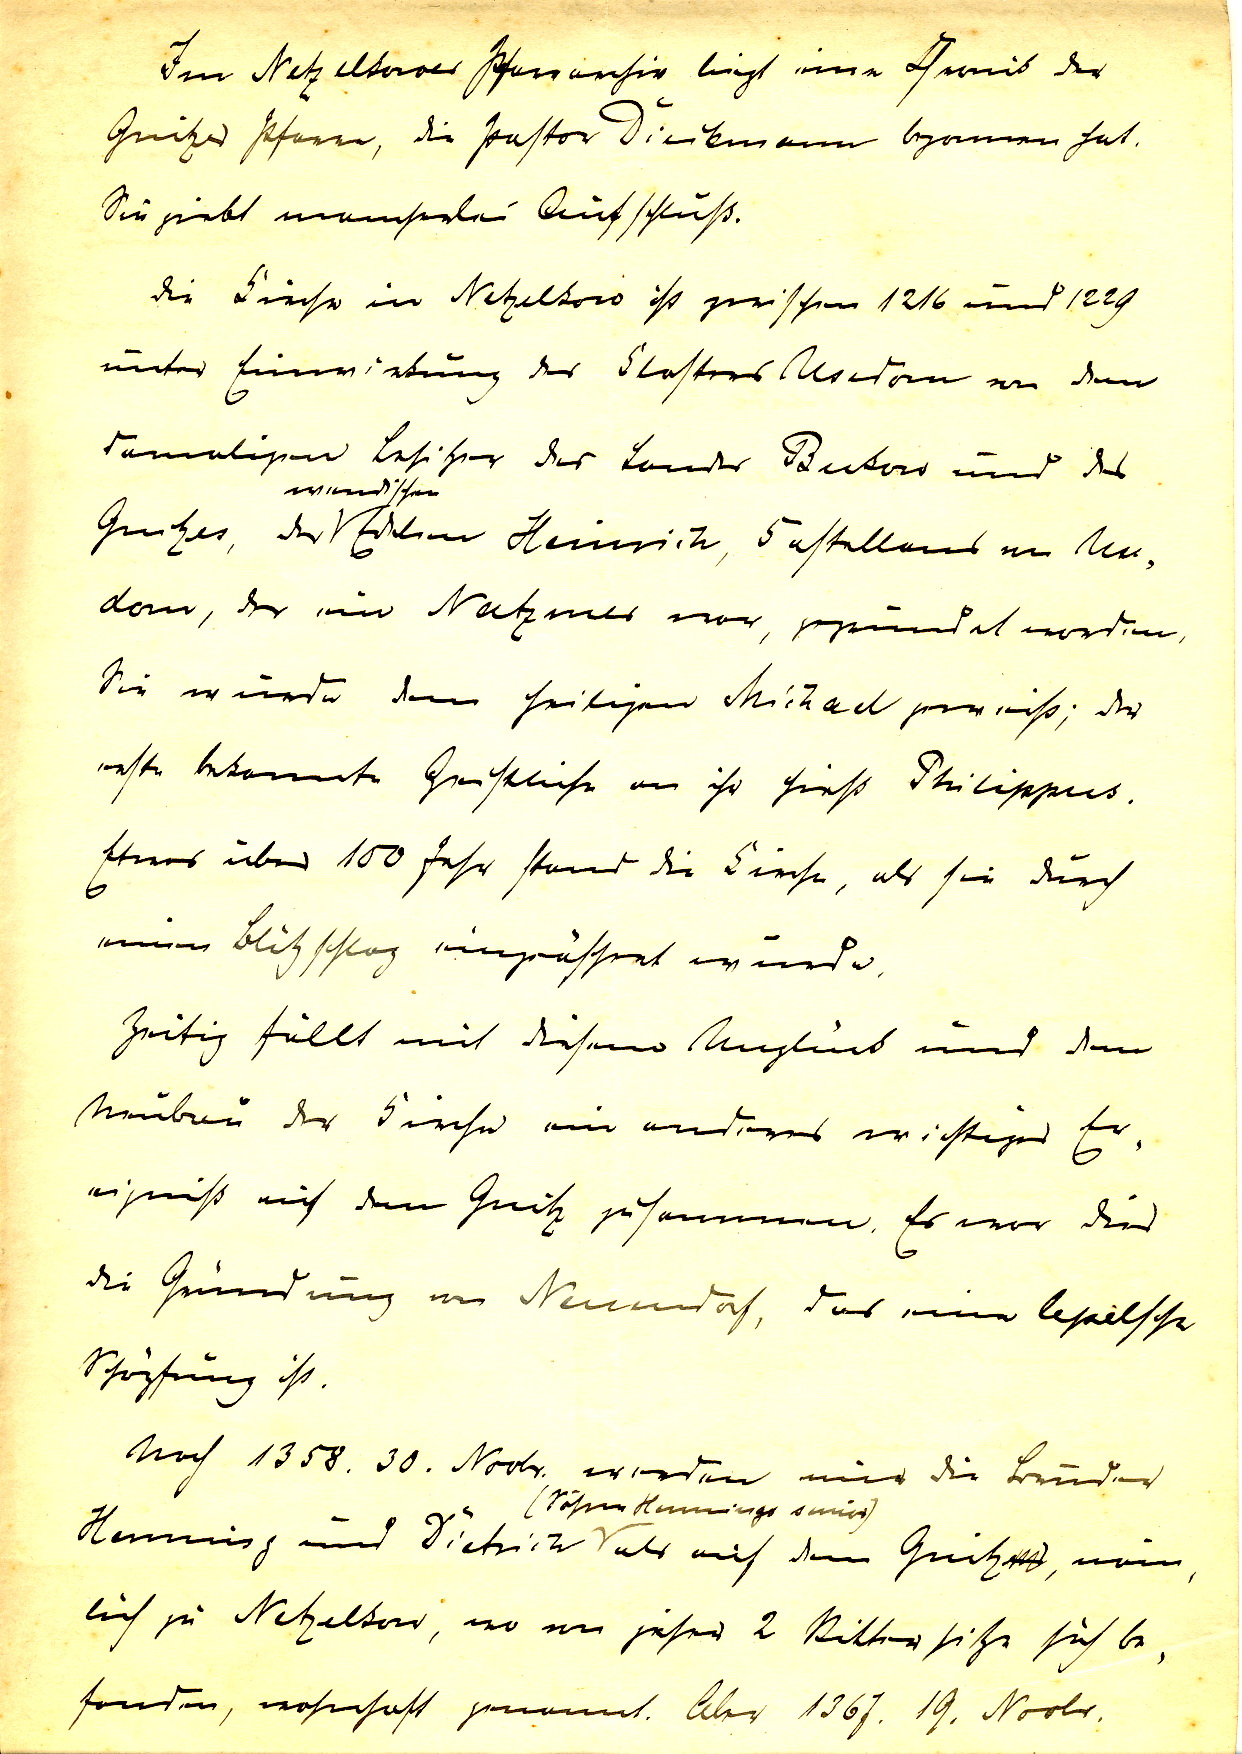 Im Netzelkower Pfarrarchiv liegt eine Chronik der
Gnitzer Pfarre, die Pastor Dieckmann begonnen hat.
Sie giebt mancherlei Aufschluß.
Die Kirche in Netzelkow ist zwischen 1216 und 1229
unter Einwirkung des Klosters Usedom von dem
damaligen Besitzer des Landes Bukow und des
wendischen
Gnitzes, des Edelen Heinrich, Castellans von Use-
dom, der ein Netzmer war, gegründet worden.
Sie wurde dem heiligen Michael geweiht; der
erste bekannte Geistliche an ihr hieß Philippus.
Etwas über 100 Jahr stand die Kirche, als sie durch
einen Blitzschlag eingeäschert wurde.
Zeitig fällt mit diesem Unglück und dem
Neubau der Kirche ein anderes wichtiges Er-
eigniß auf dem Gnitz zusammen. Es war dies
die Gründung von Neuendorf, das eine lepelsche
Schöpfung ist.
Noch 1358. 30. Novbr. werden nur die Brüder
(Söhne Hennings senior)
Henning und Dietrich als auf dem Gnitz, näm-
lich zu Netzelkow, wo von jeher 2 Rittersitze sich be-
fanden, wohnhaft genannt. Aber 1367. 19. Novbr.